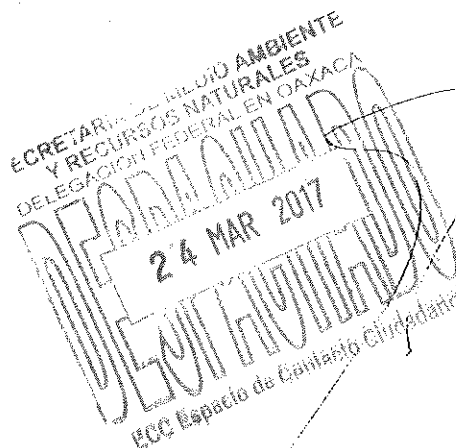 ECRETARIA DE MEDIO AMBIENTE
Y RECURSOS NATURALES
DELEGACION FEDERAL EN OAXACA
DESPACHADO
24 MAR 2017
DESPACHADO
ECC Espacio de Contacto Ciudadano